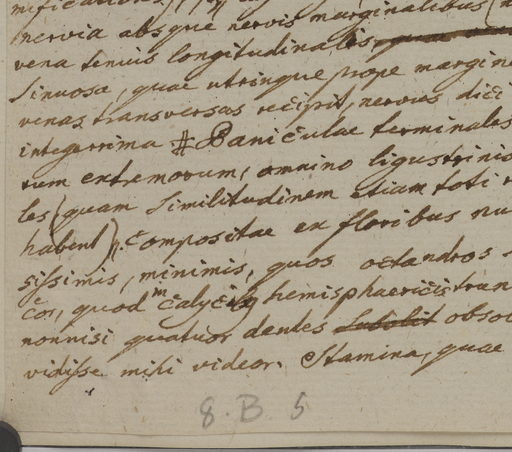 nervia absque nervis marginalibus (
vena tenuis longitudinalis
sinuosa, quae utrinque prope margine
venas transversas recipit, nervus dici
integerrima # Paniculae terminales
rum extremorum, omnino ligustrinis
les (quam similitudinem etiam toti
habent), compositae ex floribus nu
sissimis, minimis, quos octandros
quod calycis hemisphaericis trun
nonnisi quatuor dentes subolit obso
vidisse mihi videor. Stamina, quae
8. B. 5